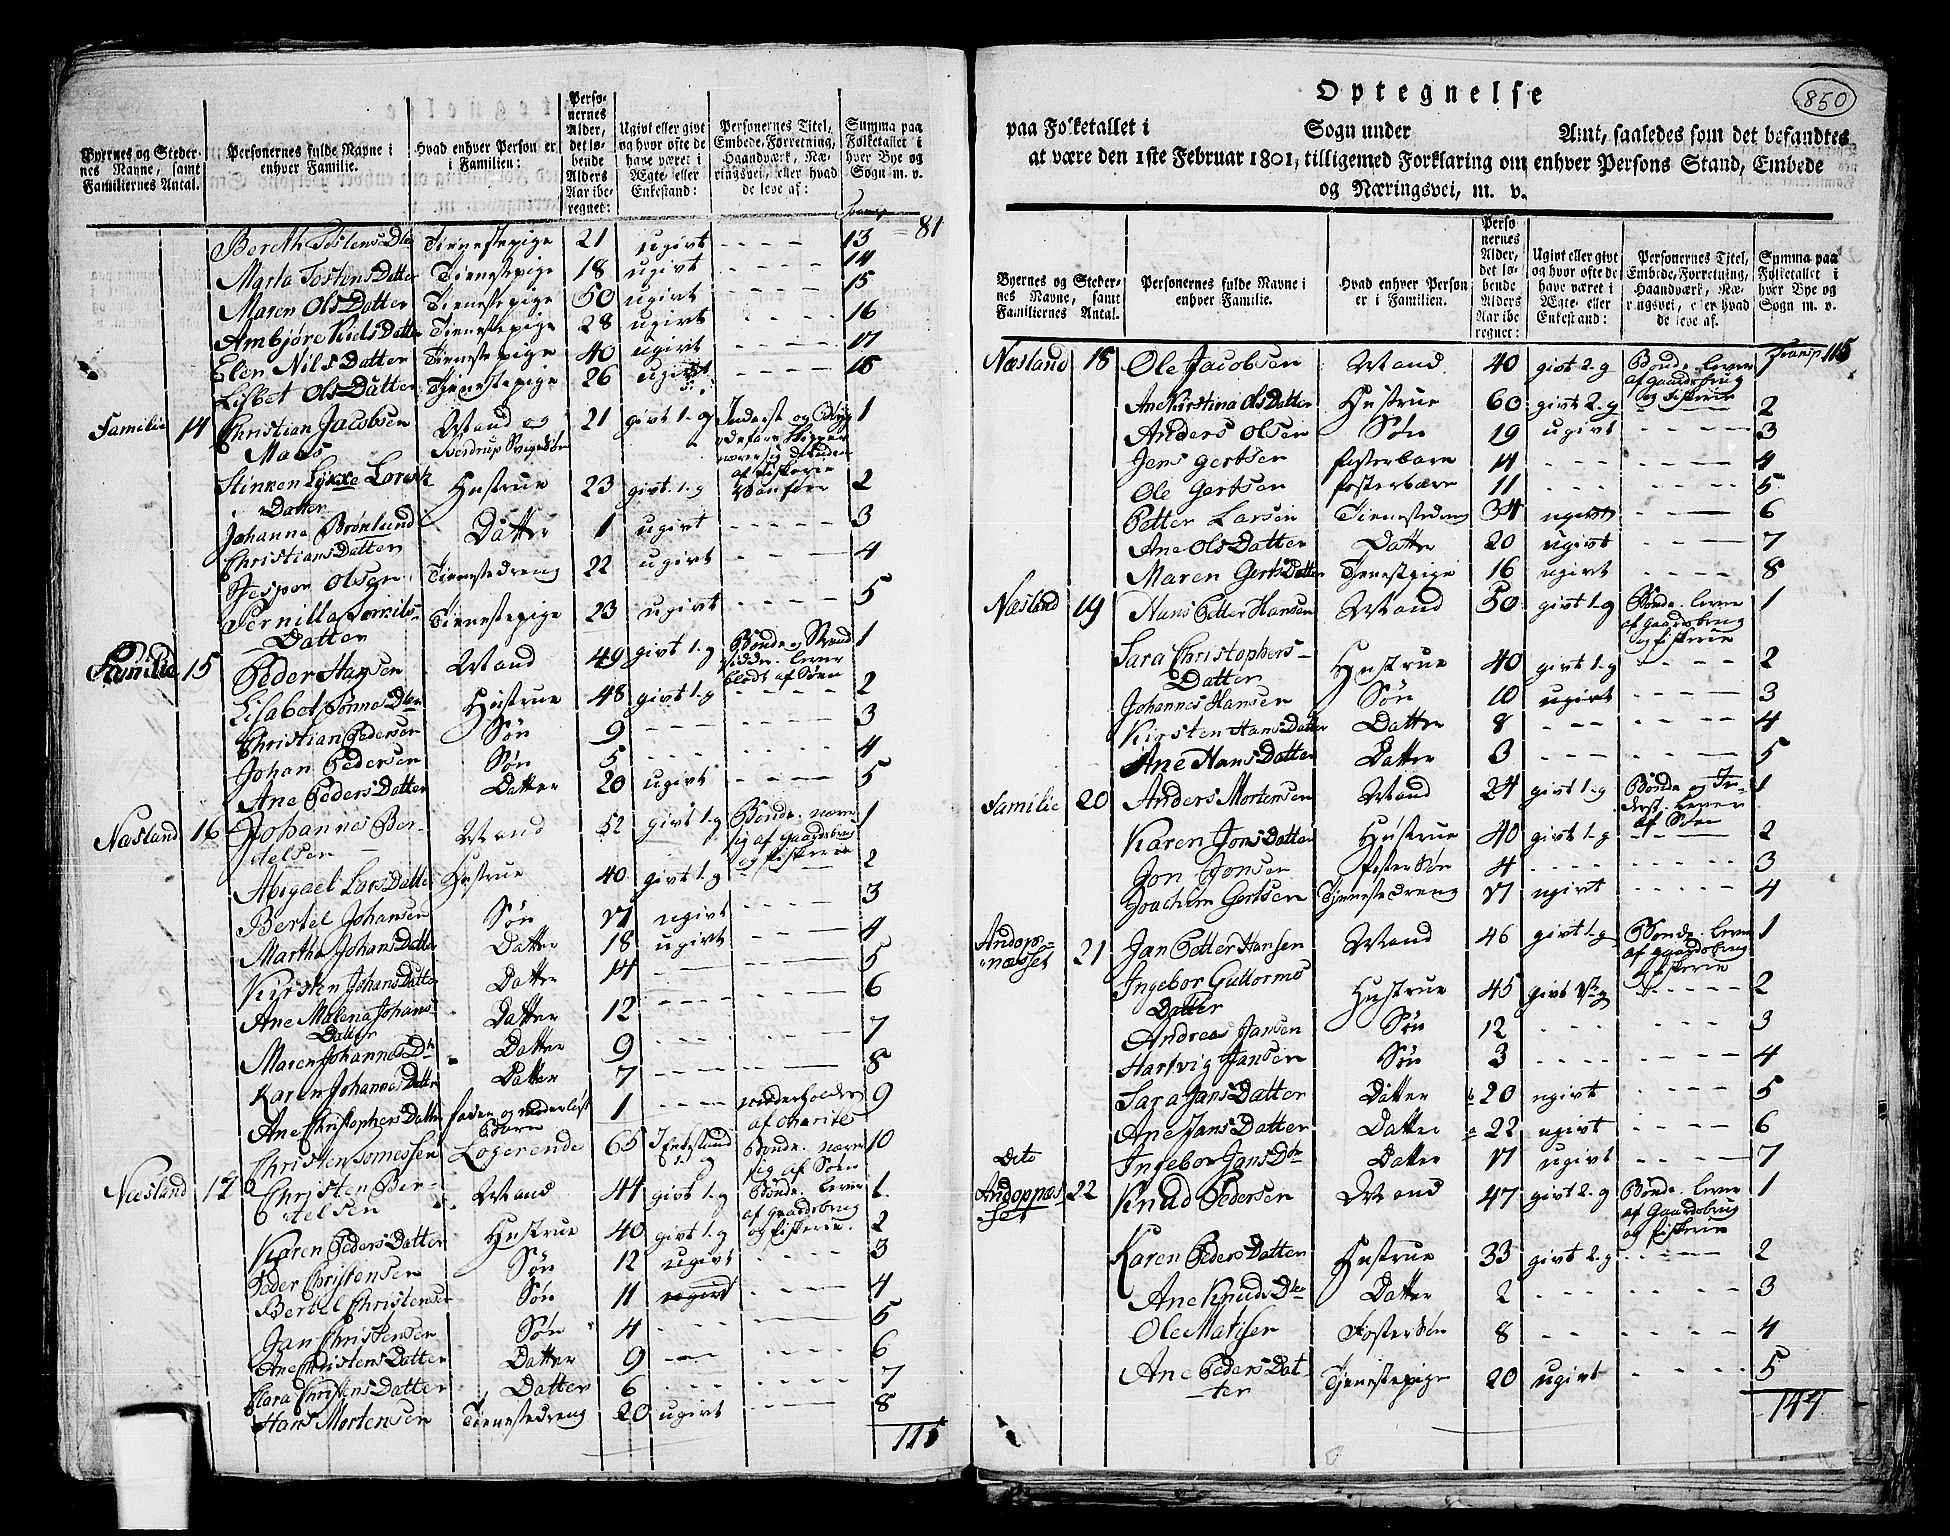 Byernes og Steder-
nes Navne, samt
Familiernes Antal.
Personernes fulde Navne i
enhver Familie.
Hvad enhver Person er
i Familien:
Perso-
nernes
Alder,
det lø-
bende
Alders
Aar ibe-
regnet:
Ugivt eller givt
og hvor ofte de
have været i
Ægte- eller
Enkestand:
Personernes Titel,
Embede, Forretning,
Haandværk, Næ-
ringsvei, eller hvad
de leve af:
Summa paa
Folketallet i
hver Bye og
Sogn m. v.
Transp 81
Bereth Tostens Dtr Tienestepige 21 ugivt - - - - 13
Marta Tostens Datter Tienestepige 18 ugivt - - - - 14
Maren Ols Datter Tienestepige 50 ugivt - - - - 15
Ambjøre Niels Datter Tienestepige 28 ugivt - - - - 16
Elen Nils Datter Tienestepige 40 ugivt - - - - 17
Lisbet Ols Datter Tjenestepige 26 ugivt - - - - 18
Familie 14 Christian Jacobsen Mand og 21 givt 1. g Inderst og 1
Stinken Lykke Lorentz Hustrue 23 givt. 1. g 2
Datter
Johanna Brønlund Datter 1 ugivt - - - - 3
Christians Datter
Jesper Olsen Tienestedreng 22 ugivt - - - 4
Pernilla Tienestepige 23 ugivt - - - - 5
Datter
Familie 15 Peder Hansen Mand 49 givt 1. g Bonde og Strand 1
sidder. lever
blodt af Søen
Lisabet Tønnes Dtr Hustrue 48 givt 1. g - - - - 2
Christian Pedersen Søn 9 - - - 3
Johan Pedersen Søn 5 - - - - 4
Ane Peders Datter Datter 20 ugivt - - - - 5
Næsland 16 Johannes Ber- Mand 52 givt 1. g Bonde. nære 1
telsen sig af gaardsbrug
og fiskerie
Abigael Lars Datter Hustrue 40 givt 1. g 2
Bertel Johansen Søn 17 ugivt - - - - 3
Martha Johans Datter Datter 18 ugivt - - - - 4
Kirsten Johans Datter Datter 14 - - - - 5
Ane Malena Johans Datter 12 - - - - 6
Datter
Maren Johannes Dtr Datter 9 - - - - 7
Karen Johannes Datter Datter 7 - - - - 8
Ane Christophers Datter fader og moderløst 1 - - - - underholdes 9
Barn af
Christen Tomessen Logerende 65 Enkestand Bonde. nære 10
1. g sig af Søen
Næsland 17 Christen Ber- Mand 44 givt 1. g Bonde. lever 1.
telsen af gaardsbrug
og fiskerie.
Karen Peders Datter Hustrue 40 givt 1. g 2
Peder Christensen Søn 12 ugivt - - - - 3
Bertel Christensen Søn 11 ugivt - - - - 4
Jan Christensen Søn 4 - - - 5
Ane Christens Datter Datter 9 - - - 6
Clara Christens Datter Datter 6 - - - - 7
Hans Mortensen Tienestedreng 20 ugivt - - - - 8
115
850
Optegnelse
paa Folketallet i Sogn under Amt, saaledes som det befandtes
at være den 1ste Februar 1801, tilligemed Forklaring om enhver Persons Stand, Embede
og Næringsvei, m. v.
Byernes og Steder-
nes Navne, samt
Familiernes Antal.
Personernes fulde Navne i
enhver Familie.
Hvad enhver Person
er i Familien.
Perso
nernes
Alder,
det lø-
bende
Alders
Aar ibe
regnet:
Ugivt eller givt
og hvor ofte de
have været i
Ægte- eller
Enkestand:
Personernes Titel,
Embede, Forretning,
Haandværk, Næ-
ringsvei, eller hvad
de leve af.
Summa paa
Folketallet i
hver Bye og
Sogn m. v.
Transp 115
Næsland 18 Ole Jacobsen Mand 40 givt 2. g Bonde. lever 1
af gaardsbrug
og fiskerie
Ane Kirstina Ols Datter Hustrue 60 givt 2. g - - - - 2
Anders Olsen Søn 19 ugivt - - - - 3
Jens Gertsen fosterbarn 14 - - - - 4
Ole Gertsen fosterbarn 11 - - - - 5
Petter Larsen Tienestedreng 34 ugivt - - - 6
Ane Ols Datter Datter 20 ugivt - - - - 7
Maren Gerts Datter Tjenestepige 16 ugivt - - - - 8
Næsland 19 Hans Petter Hansen Mand 50 givt 1. g Bonde. lever 1
af gaardsbrug
og fiskerie
Sara Christophers- Hustrue 40 givt 1. g - - - - 2
Datter
Johannes Hansen Søn 10 ugivt - - - - 3
Kirsten Hans Datter Datter 8 - - - - 4
Ane Hans Datter Datter 3 - - - - 5
Familie 20 Anders Mortensen Mand 24 givt 1. g Bonde og In- 1
derst. lever
af Søen
Karen Jons Datter Hustrue 40 givt 1. g 2
Jon Jonsen foster Søn 4 - - - - 3
Joachim Gertsen Tjenestedreng 17 ugivt - - - - 4
Andops-
næsset 21 Jan Petter Hansen Mand 46 givt 1. g Bonde. lever 1
af gaardsbrug
fiskerie
Ingebor Guttorms Hustrue 45 givt 1. g - - - - 2
Datter
Andrea Jansen Søn 12 - - - - 3
Hartvig Jansen Søn 3 - - - - 4
Sara Jans Datter Datter 20 ugivt - - - - 5
Ane Jans Datter Datter 22 ugivt - - - - 6
Dito Ingebor Jans Dtr Datter 17 ugivt - - - - 7
Andopnæs 22 Knud Pedersen Mand 47 givt 2. g Bonde. lever 1
set af gaardsbrug
og fiskerie
Karen Peders Datter Hustrue 33 givt 2. g - - - - 2
Ane Knuds Dtr Datter 2 - - - - 3
Ole Matisen Fostersøn 8 - - - - 4
Ane Peders Dat- Tjenestepige 20 ugivt - - - - 5
-ter
144